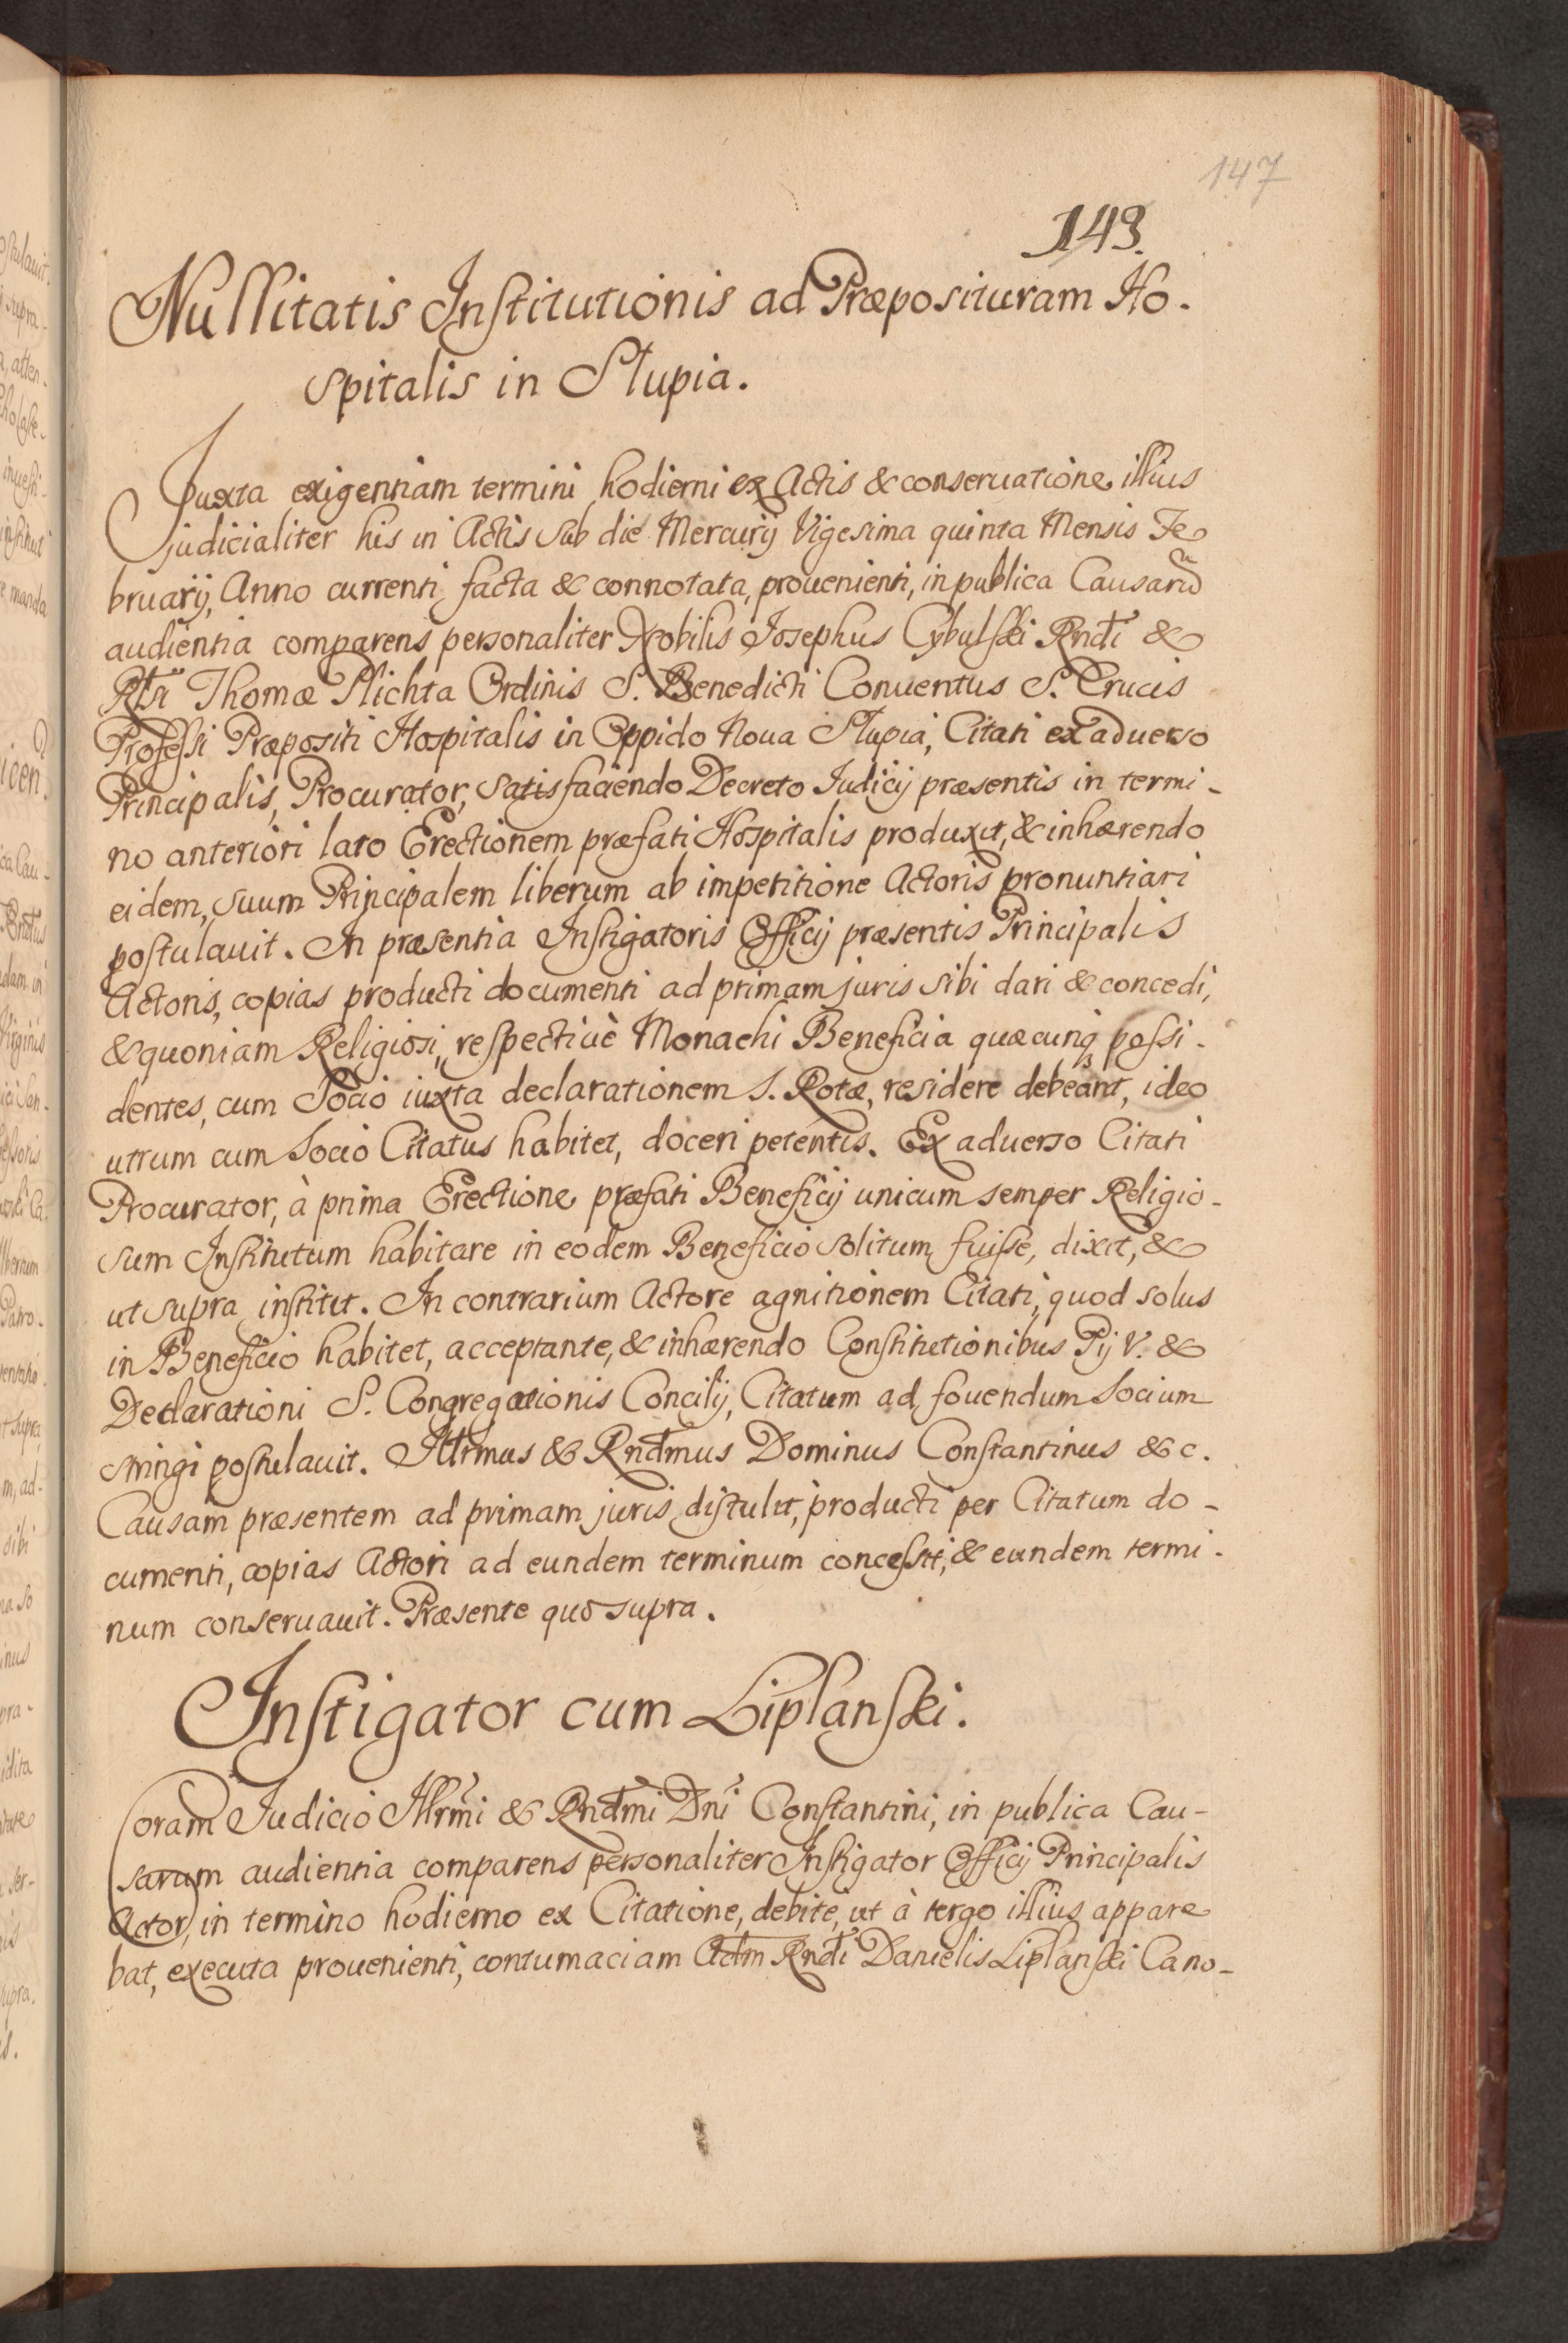 147
143.
Nullitatis Institutionis ad Præposituram Ho-
spitalis in Słupia.
Juxta exigentiam termini hodierni ex Actis & conseruatione illius
judicialiter his in Actis sub die Mercurij Vigesima quinta Mensis Fe
bruarij, Anno currenti facta & connotata, prouenienti, in publica Causarũ
audientia comparens personaliter Nobilis Josephus Cybulski Rndi &
Rlsi Thomæ Plichta Ordinis S. Benedicti Conuentus S. Crucis
Professi Præpositi Hospitalis in Oppido Noua Słupia, Citati ex aduerso
Principalis, Procurator, satisfaciendo Decreto Judicij præsentis in termi-
no anteriori lato Erectionem præfati Hospitalis produxit, & inhærendo
eidem, suum Principalem liberum ab impetitione Actoris pronuntiari
postulauit. In præsentia Instigatoris Officij præsentis Principalis
Actoris, copias producti documenti ad primam juris sibi dari & concedi,
& quoniam Religiosi, respectiuè Monachi Beneficia quæcunq possi-
dentes, cum Socio iuxta declarationem S. Rotæ, residere debeant, ideo
utrum cum Socio Citatus habitet, doceri petentis. Ex aduerso Citati
Procurator, à prima Erectione præfati Beneficij unicum semper Religio-
sum Institutum habitare in eodem Beneficio solitum fuisse, dixit, &
ut supra institit. In contrarium Actore agnitionem Citati, quod solus
in Beneficio habitet, acceptante, & inhærendo Constitutionibus Pij V. &
Declarationi S. Congregationis Concilij, Citatum ad fouendum Socium
stringi postulauit. Illrmus & Rndmus Dominus Constantinus & c.
Causam præsentem ad primam juris distulit, producti per Citatum do-
cumenti, copias Actori ad eundem terminum concessit, & eundem termi-
num conseruauit. Præsente quo supra.
Instigator cum Liplanski.
Coram Judicio Illrmi & Rndmi Dni Constantini, in publica Cau-
sarum audientia comparens personaliter Instigator Officij Principalis
Actor, in termino hodierno ex Citatione, debite, ut à tergo illius appare
bat, executa prouenienti, contumaciam Adm Rndi Danielis Liplanski Cano-